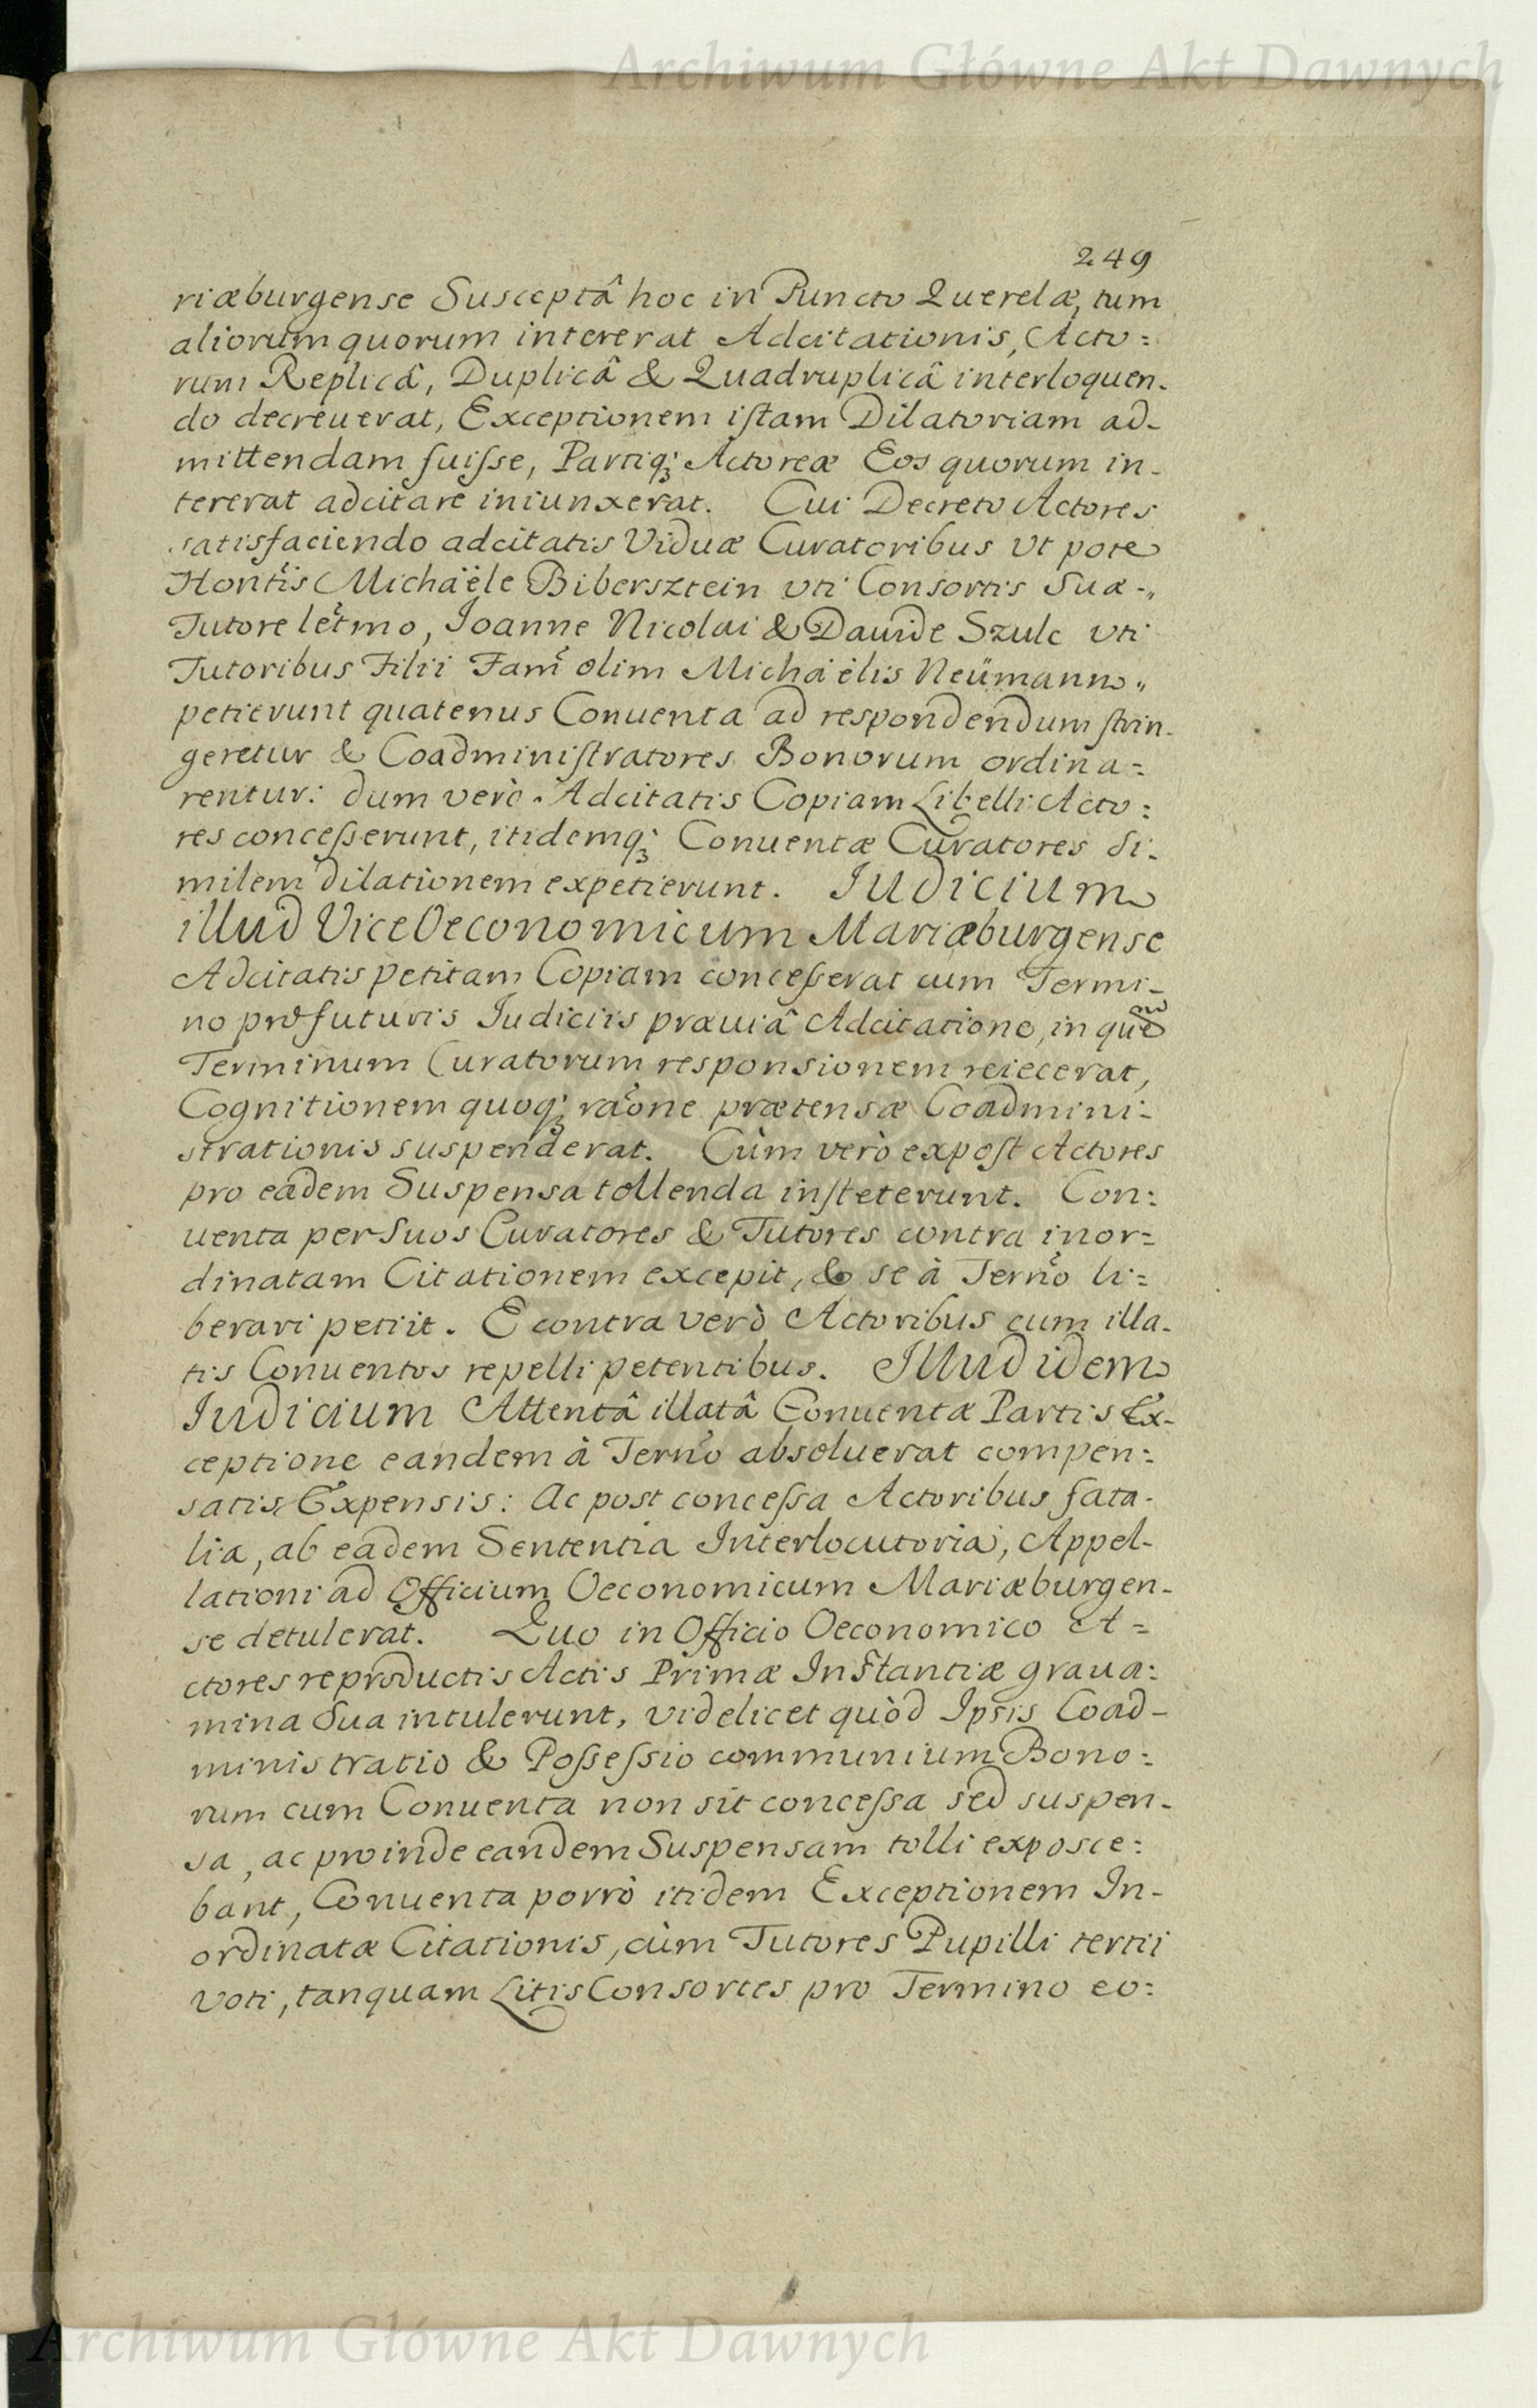 Archiwum Główne Akt Dawnych
249
riæburgense Susceptâ hoc in Puncto Querelæ, tum
aliorum quorum intererat Adcitationis, Acto:
rum Replicâ, Duplicâ & Quadruplicâ interloquen-
do decreuerat, Exceptionem istam Dilatoriam ad-
mittendam fuisse, Partiq; Actoreæ Eos quorum in-
tererat adcitare iniunxerat. Cui Decreto Actores
satisfaciendo adcitatis Viduæ Curatoribus Vt pote
Hontis Michaële Bibersztein vti Consortis Suæ
Tutore letmo, Joanne Nicolai & Dauide Szulc vti
Tutoribus Filii Fam olim Michaëlis Neümann
petierunt quatenus Conuenta ad respondendum strin-
geretur & Coadministratores Bonorum ordina=
rentur: dum verò Adcitatis Copiam Libelli Acto:
res concesserunt, itidemq; Conuentæ Curatores Si-
milem dilationem expetierunt. Judicium
illud ViceOeconomicum Mariæburgense
Adcitatis petitam Copiam concesserat cum Termi-
no pro futuris Judiciis præuiâ Adcitatione, in quem
Terminum Curatorum responsionem reiecerat,
Cognitionem quoq; raone prætensæ Coadmini-
strationis suspenderat. Cùm verò expost Actores
pro eâdem Suspensa tollenda insteterunt. Con:
uenta per Suos Curatores & Tutores contra inor=
dinatam Citationem excepit, & se à Terno li=
berari petiit. E contra verò Actoribus cum illa-
tis Conuentos repelli petentibus. Illud idem
Judicium Attentâ illatâ Conuentæ Partis Ex-
ceptione eandem à Terno absoluerat compen:
satis Expensis: Ac post concessa Actoribus fata-
lia, ab eadem Sententia Interlocutoria, Appel-
lationi ad Officium Oeconomicum Mariæburgen-
se detulerat. Quo in Officio Oeconomico A=
ctores reproductis Actis Primæ Instantiæ graua:
mina Sua intulerunt, videlicet quòd Ipsis Coad-
ministratio & Possessio communium Bono:
rum cum Conuenta non sit concessa sed suspen-
sa, ac proinde eandem Suspensam tolli exposce:
bant, Conuenta porrò itidem Exceptionem In-
ordinatæ Citationis, cùm Tutores Pupilli tertii
Voti, tanquam Litis Consortes pro Termino eo:
Archiwum Główne Akt Dawnych